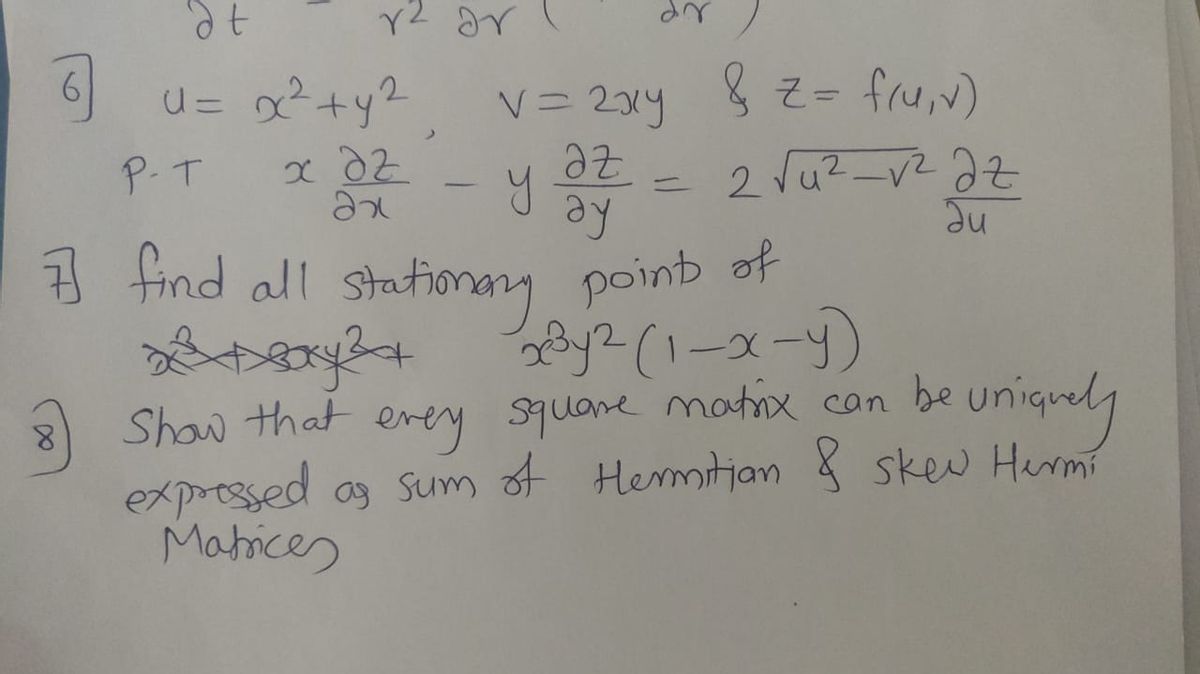 ∂t r² ∂r ( ∂r )
6] u = x² + y² , v = 2xy & z = f(u,v)
P.T x ∂z/∂x - y ∂z/∂y = 2 √u²-v² ∂z/∂u
7] find all stationary points of
x³ + 3xy² + x³y² (1-x-y)
8) Show that every square matrix can be uniquely
expressed as sum of Hermitian & skew Hermi
Matrices